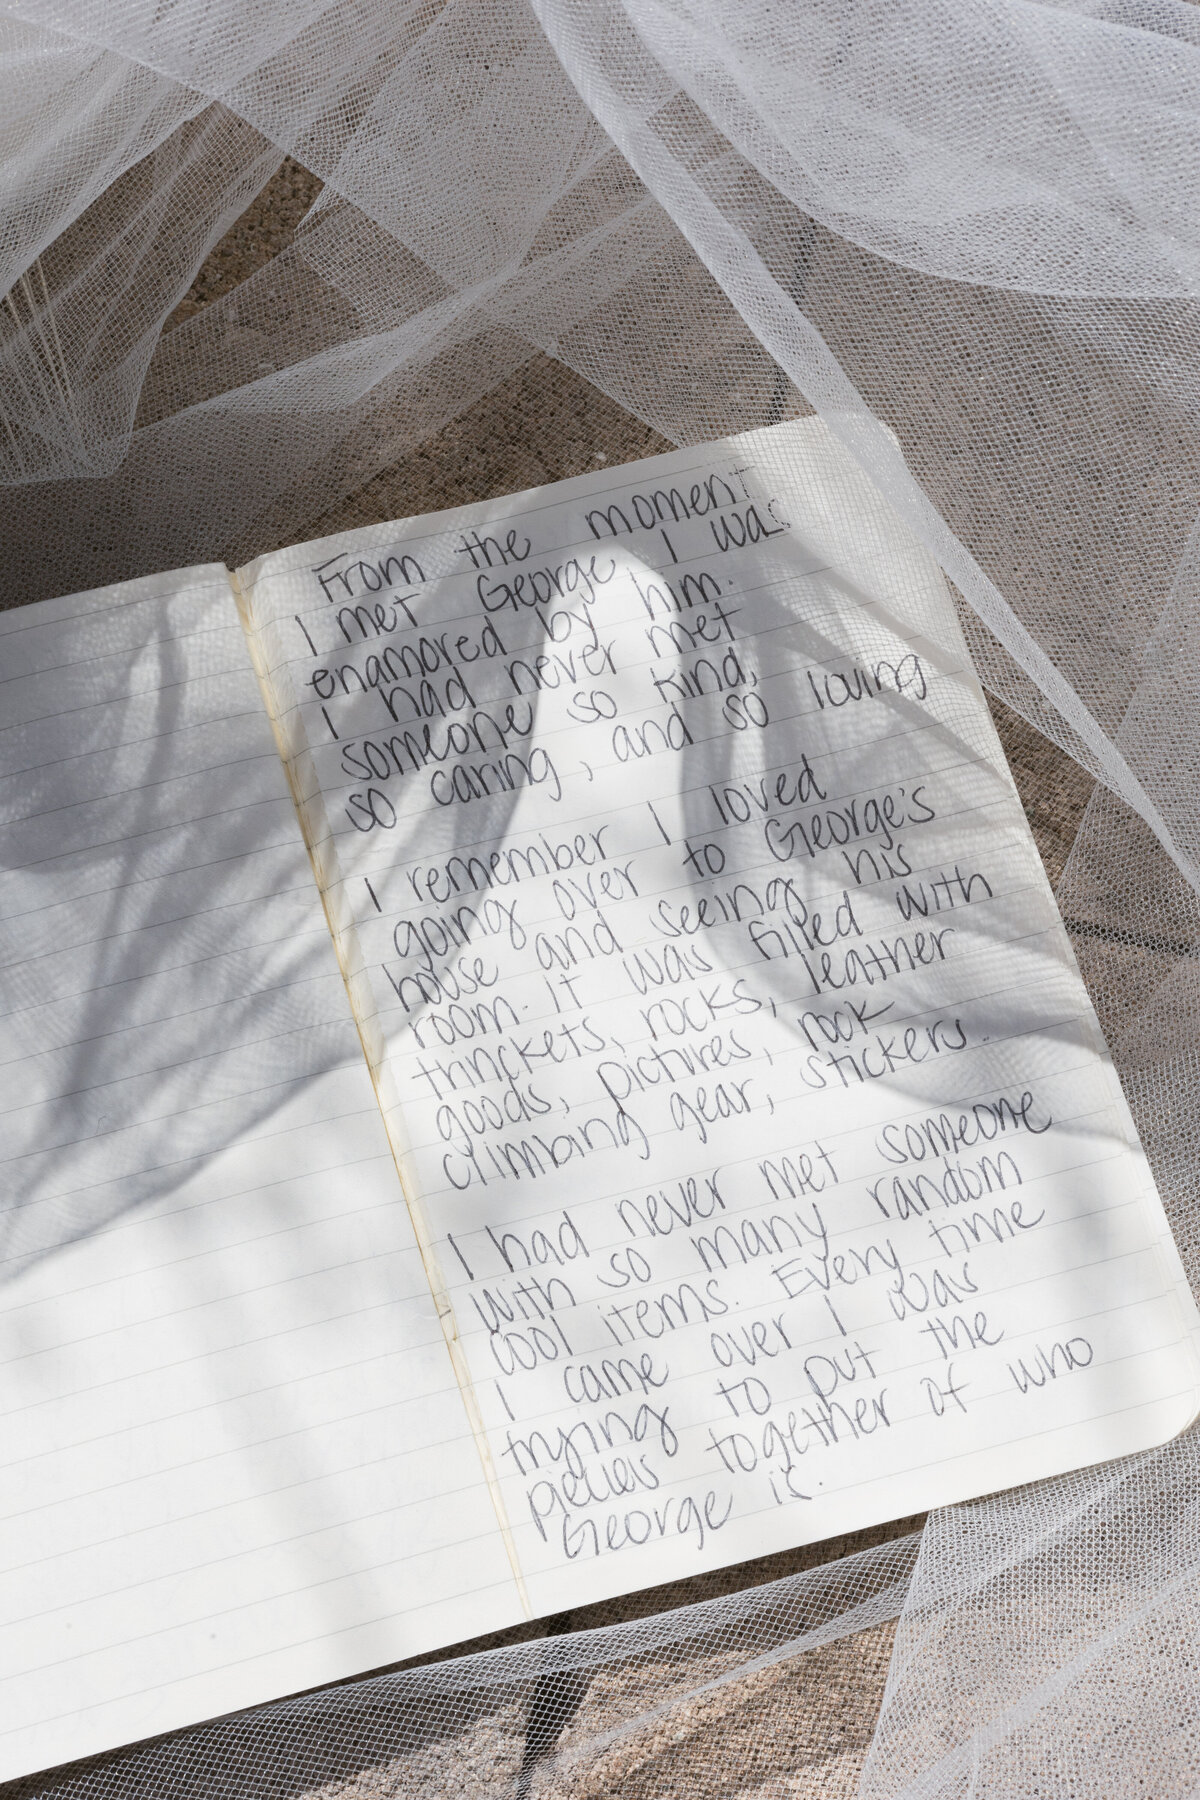 From the moment
I met George I was
enamored by him.
I had never met
someone so kind,
so caring, and so loving
I remember I loved
going over to George's
house and seeing his
room. It was filled with
trinckets, rocks, leather
goods, pictures, rock
climbing gear, stickers.
I had never met someone
with so many random
cool items. Every time
I came over I was
trying to put the
pieces together of who
George is.